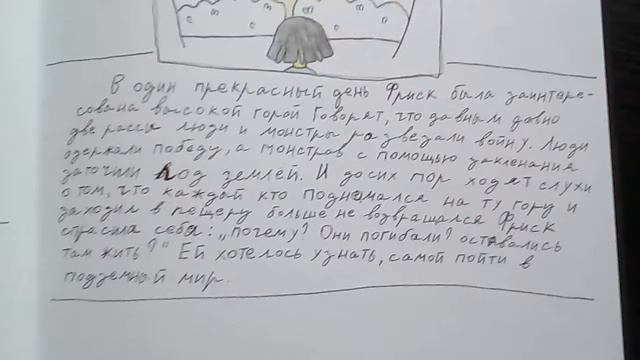 В один прекрасный день Фриск была заинтере-
сована высокой горой Говорят, что давным давно
две рассы люди и монстры развезали войну. Люди
одержали победу, а монстров с помощью закленания
заточили под землей. И до сих пор ходят слухи
о том, что каждай кто поднемался на ту гору и
заходил в пещеру больше не возвращался Фриск
спрасила себя: „почему? Они погибали? оставались
там жить?" Ей хотелось узнать, самой пойти в
подземный мир.